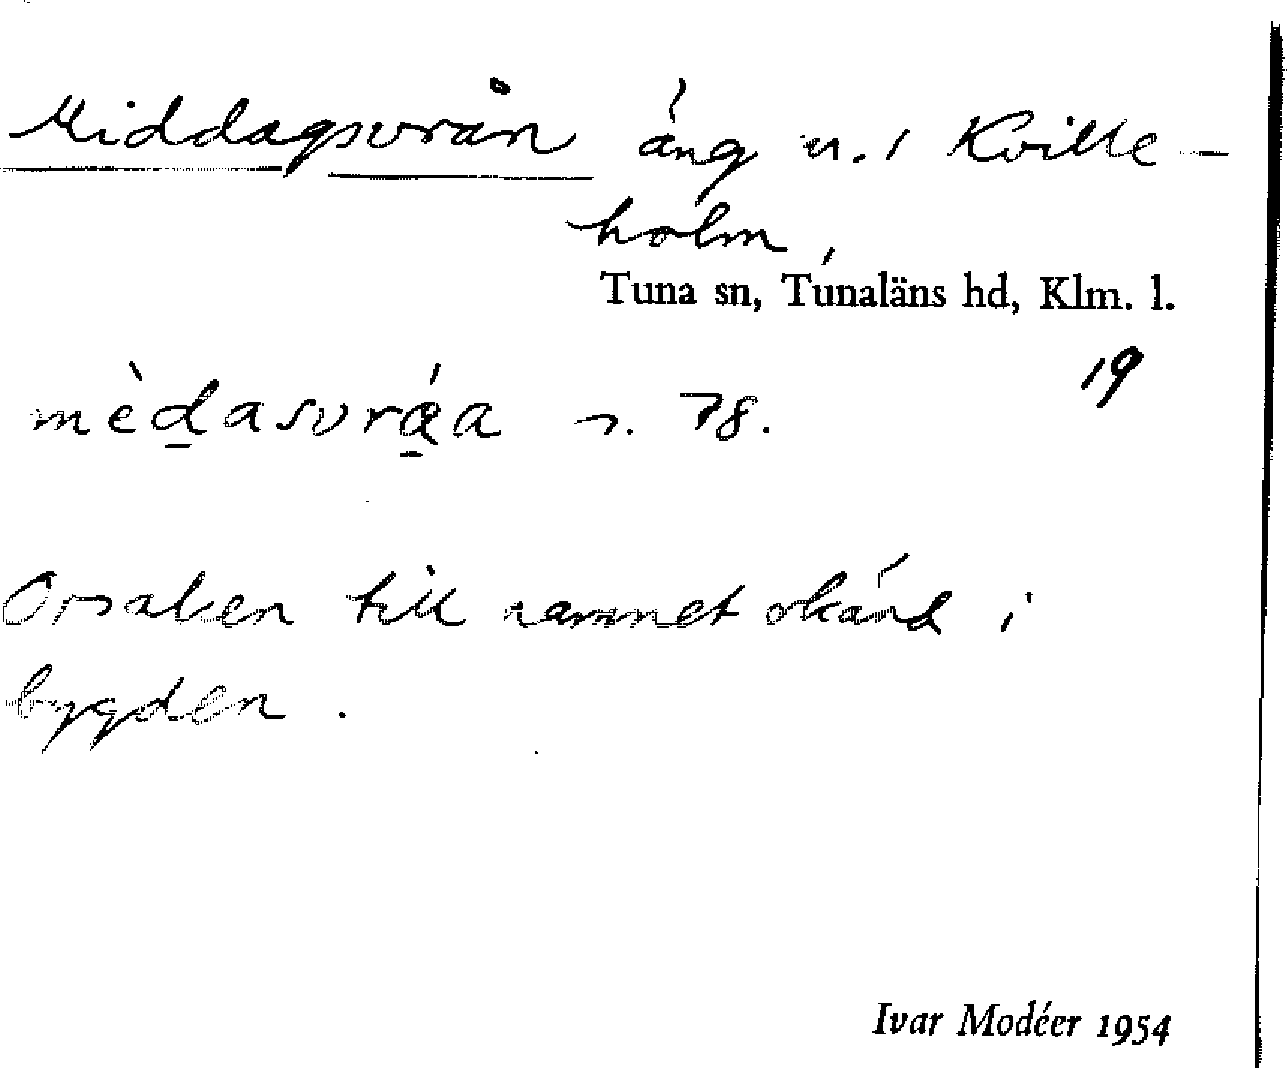 Middagsvrån äng u. / Kville-
holm,
Tuna sn, Tunaläns hd, Klm. l.
19
78.
Orsaken till namnet okänd i
bygden.
Ivar Modéer 1954